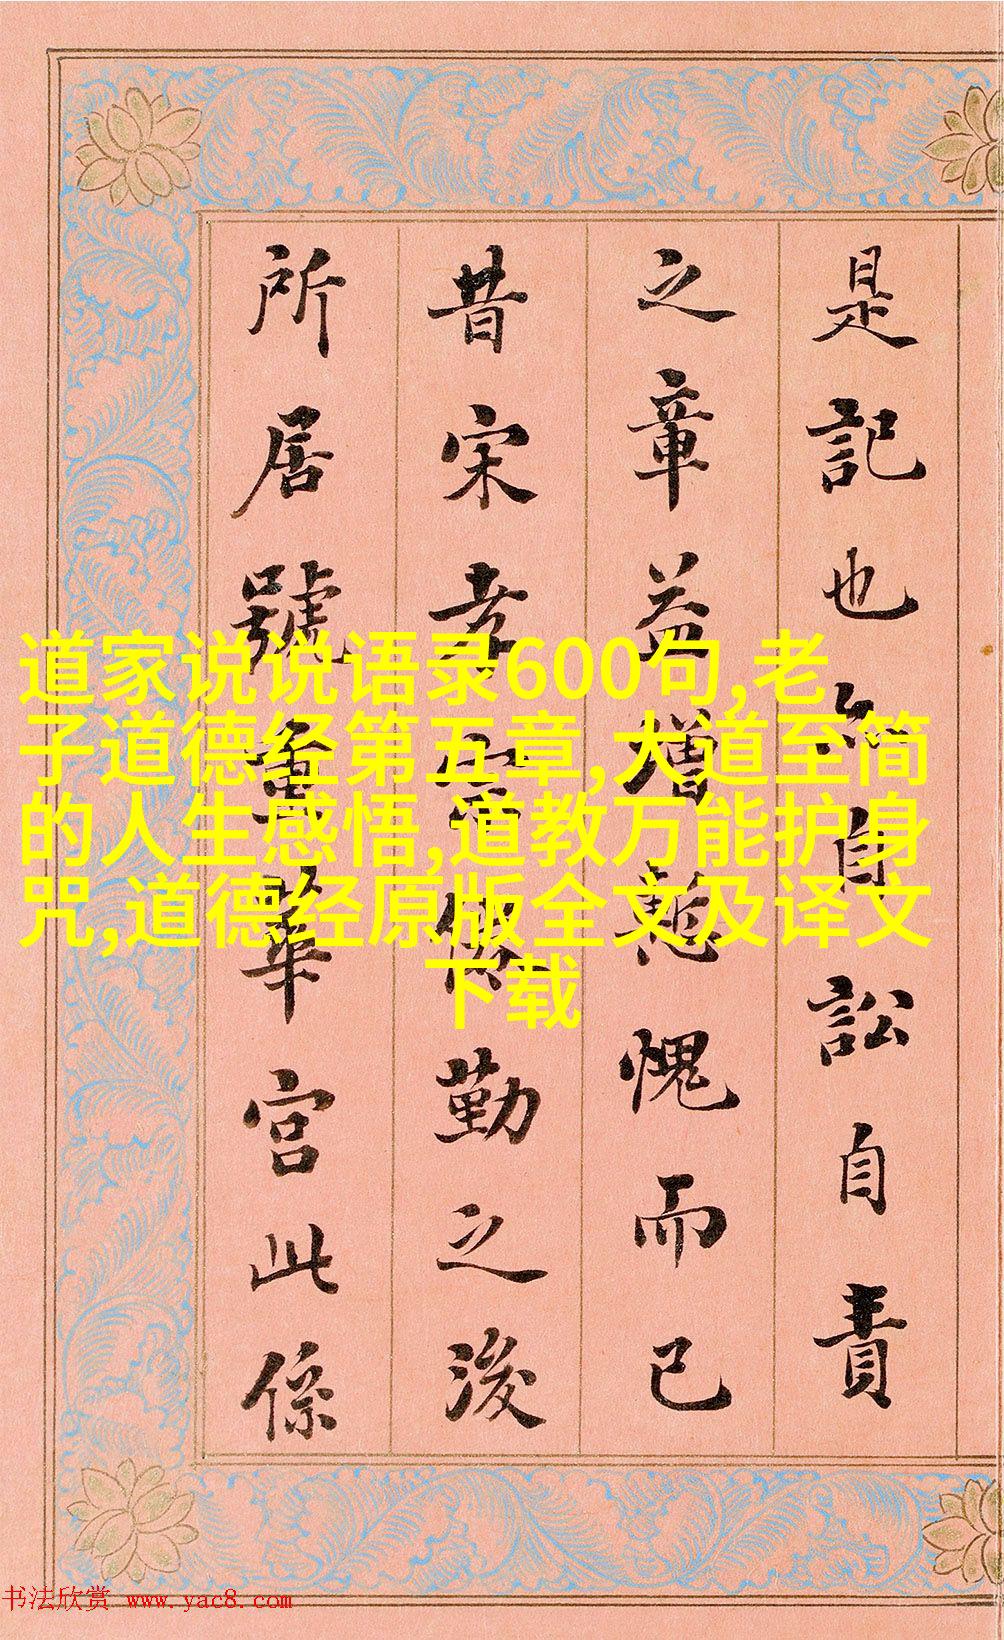 是記也自訟自責
之章益增慙愧而已
昔宋孝宗倦勤之後
所居號重華宮此係
道家说说语录600句,老
子道德经第五章,大道至简
的人生感悟,道教万能护身
咒,道德经原版全文及译文
下载
书法欣赏 www.yac8.com